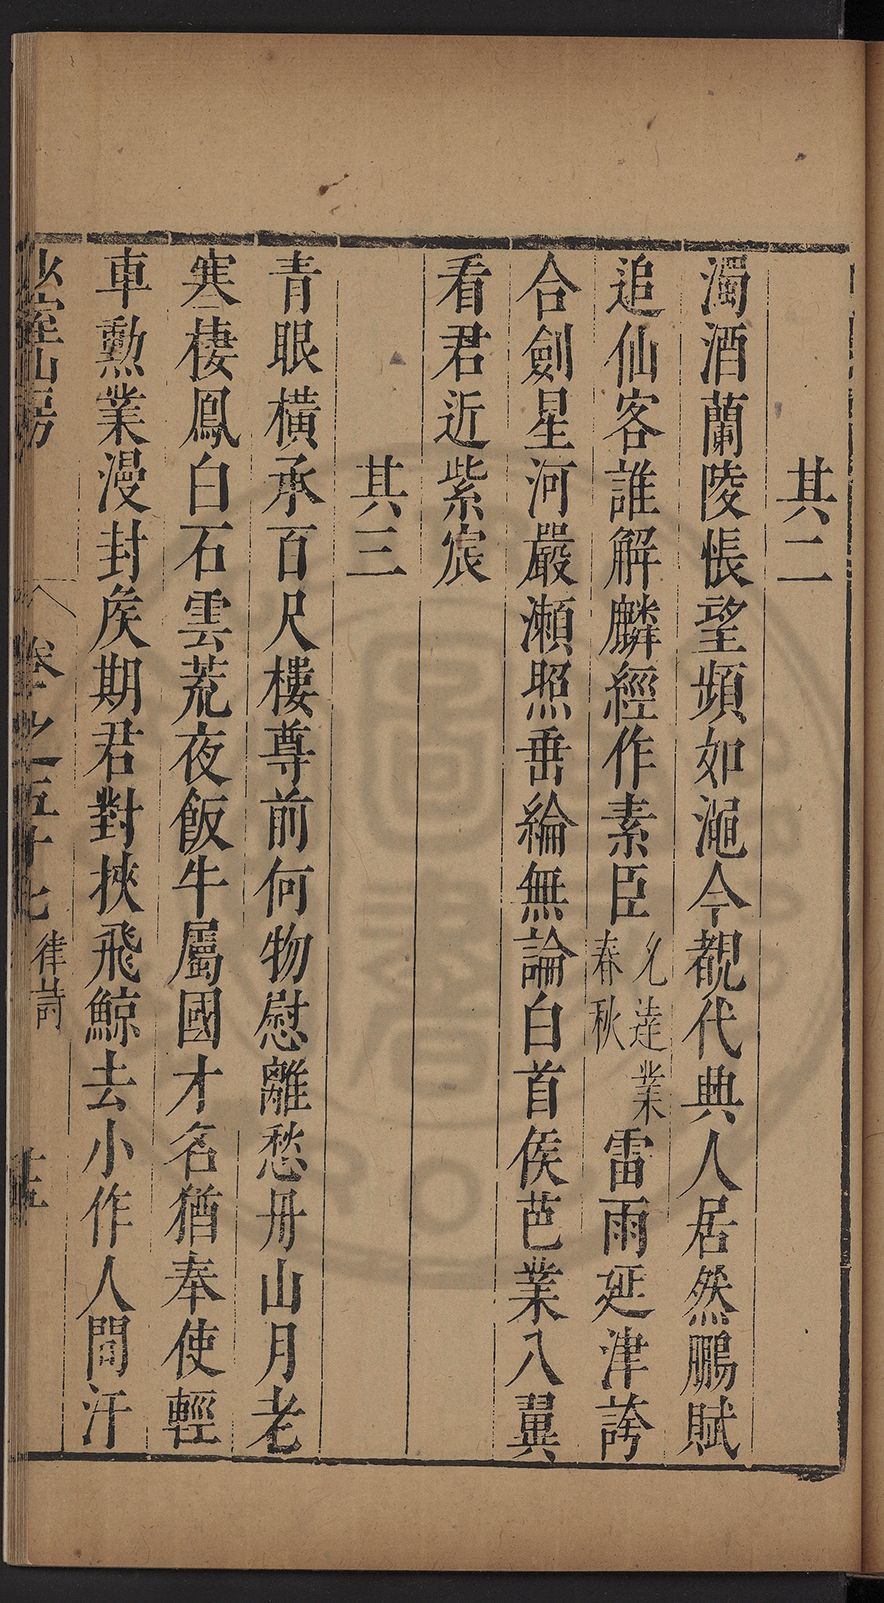 其二
濁酒蘭陵悵望頻如澠今覩代典人居然鵬賦
追仙客誰解麟經作素臣允達業春秋雷雨延津誇
合劍星河嚴瀨照垂綸無論白首侯芭業八翼
看君近紫宸
其三
青眼橫承百尺樓尊前何物慰離愁丹山月老
寒棲鳳白石雲荒夜飯牛屬國才名猶奉使輕
車勳業漫封矦期君對挾飛鯨去小作人間汗
少室山房 卷之五十七 律詩 十五